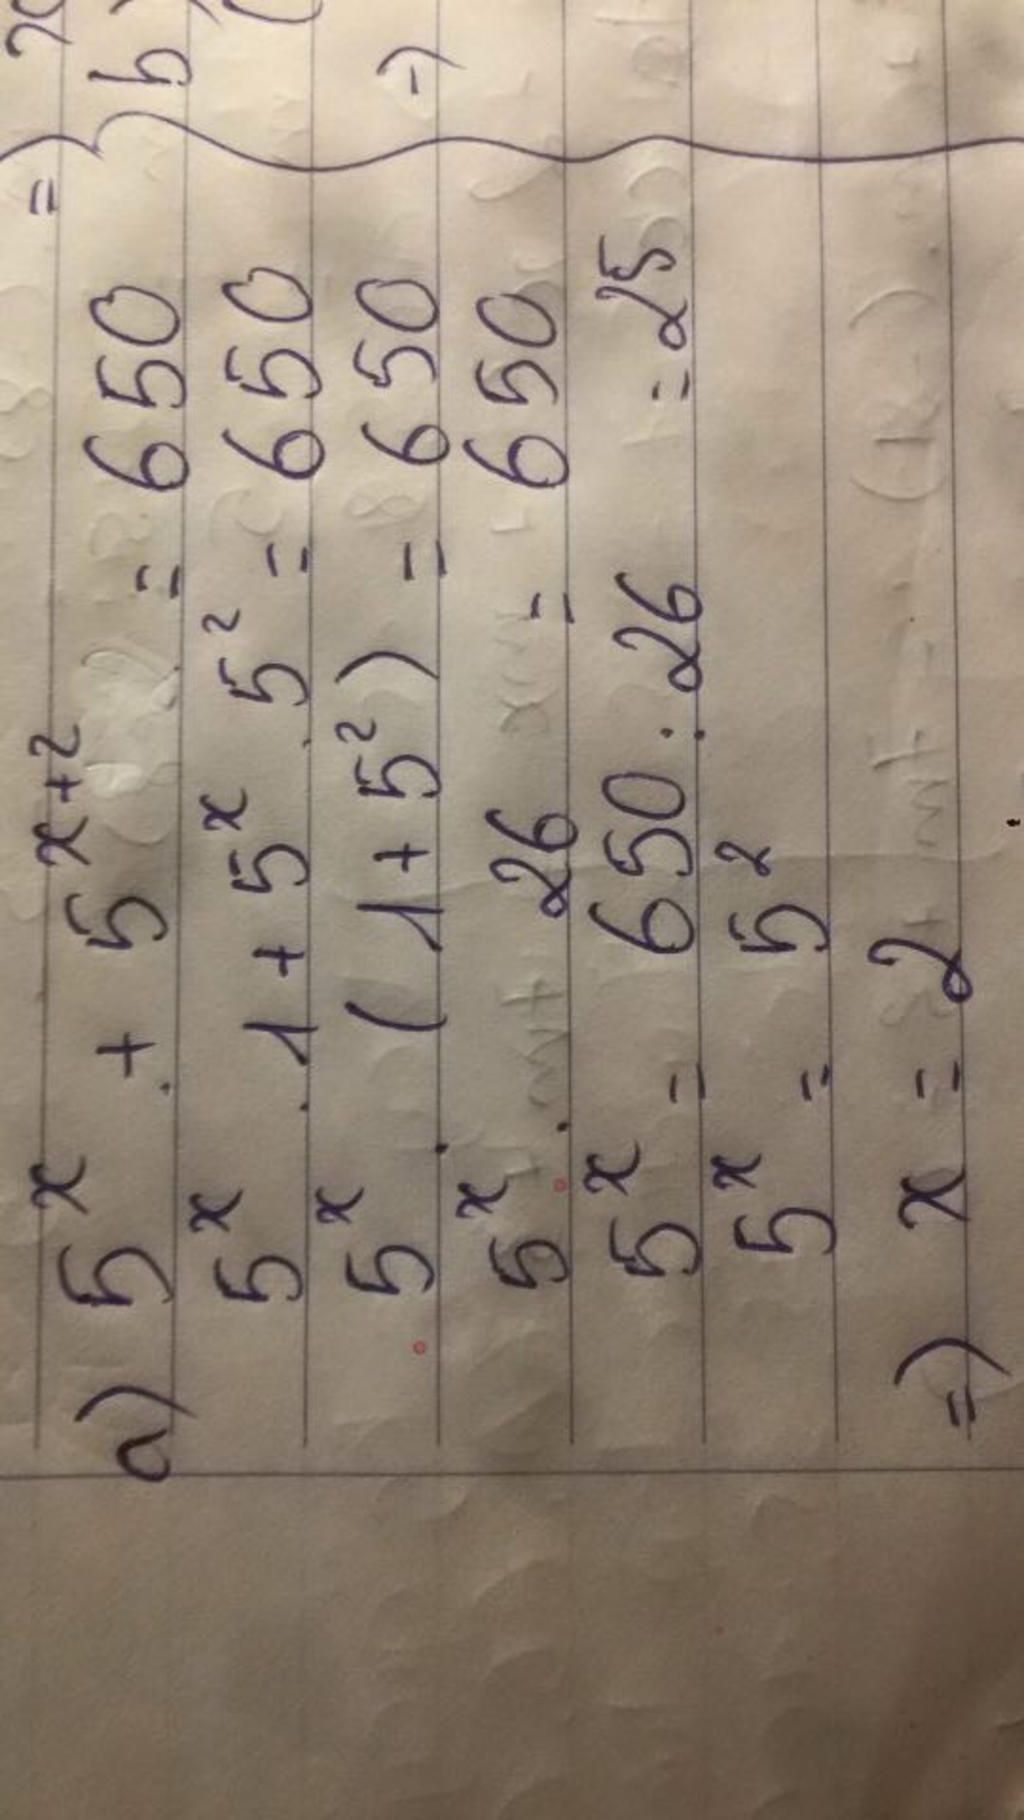 a) 5^x + 5^{x+2} = 650
5^x . 1 + 5^x . 5^2 = 650
5^x . (1 + 5^2) = 650
5^x . 26 = 650
5^x = 650 : 26 = 25
5^x = 5^2
=) x = 2
b)